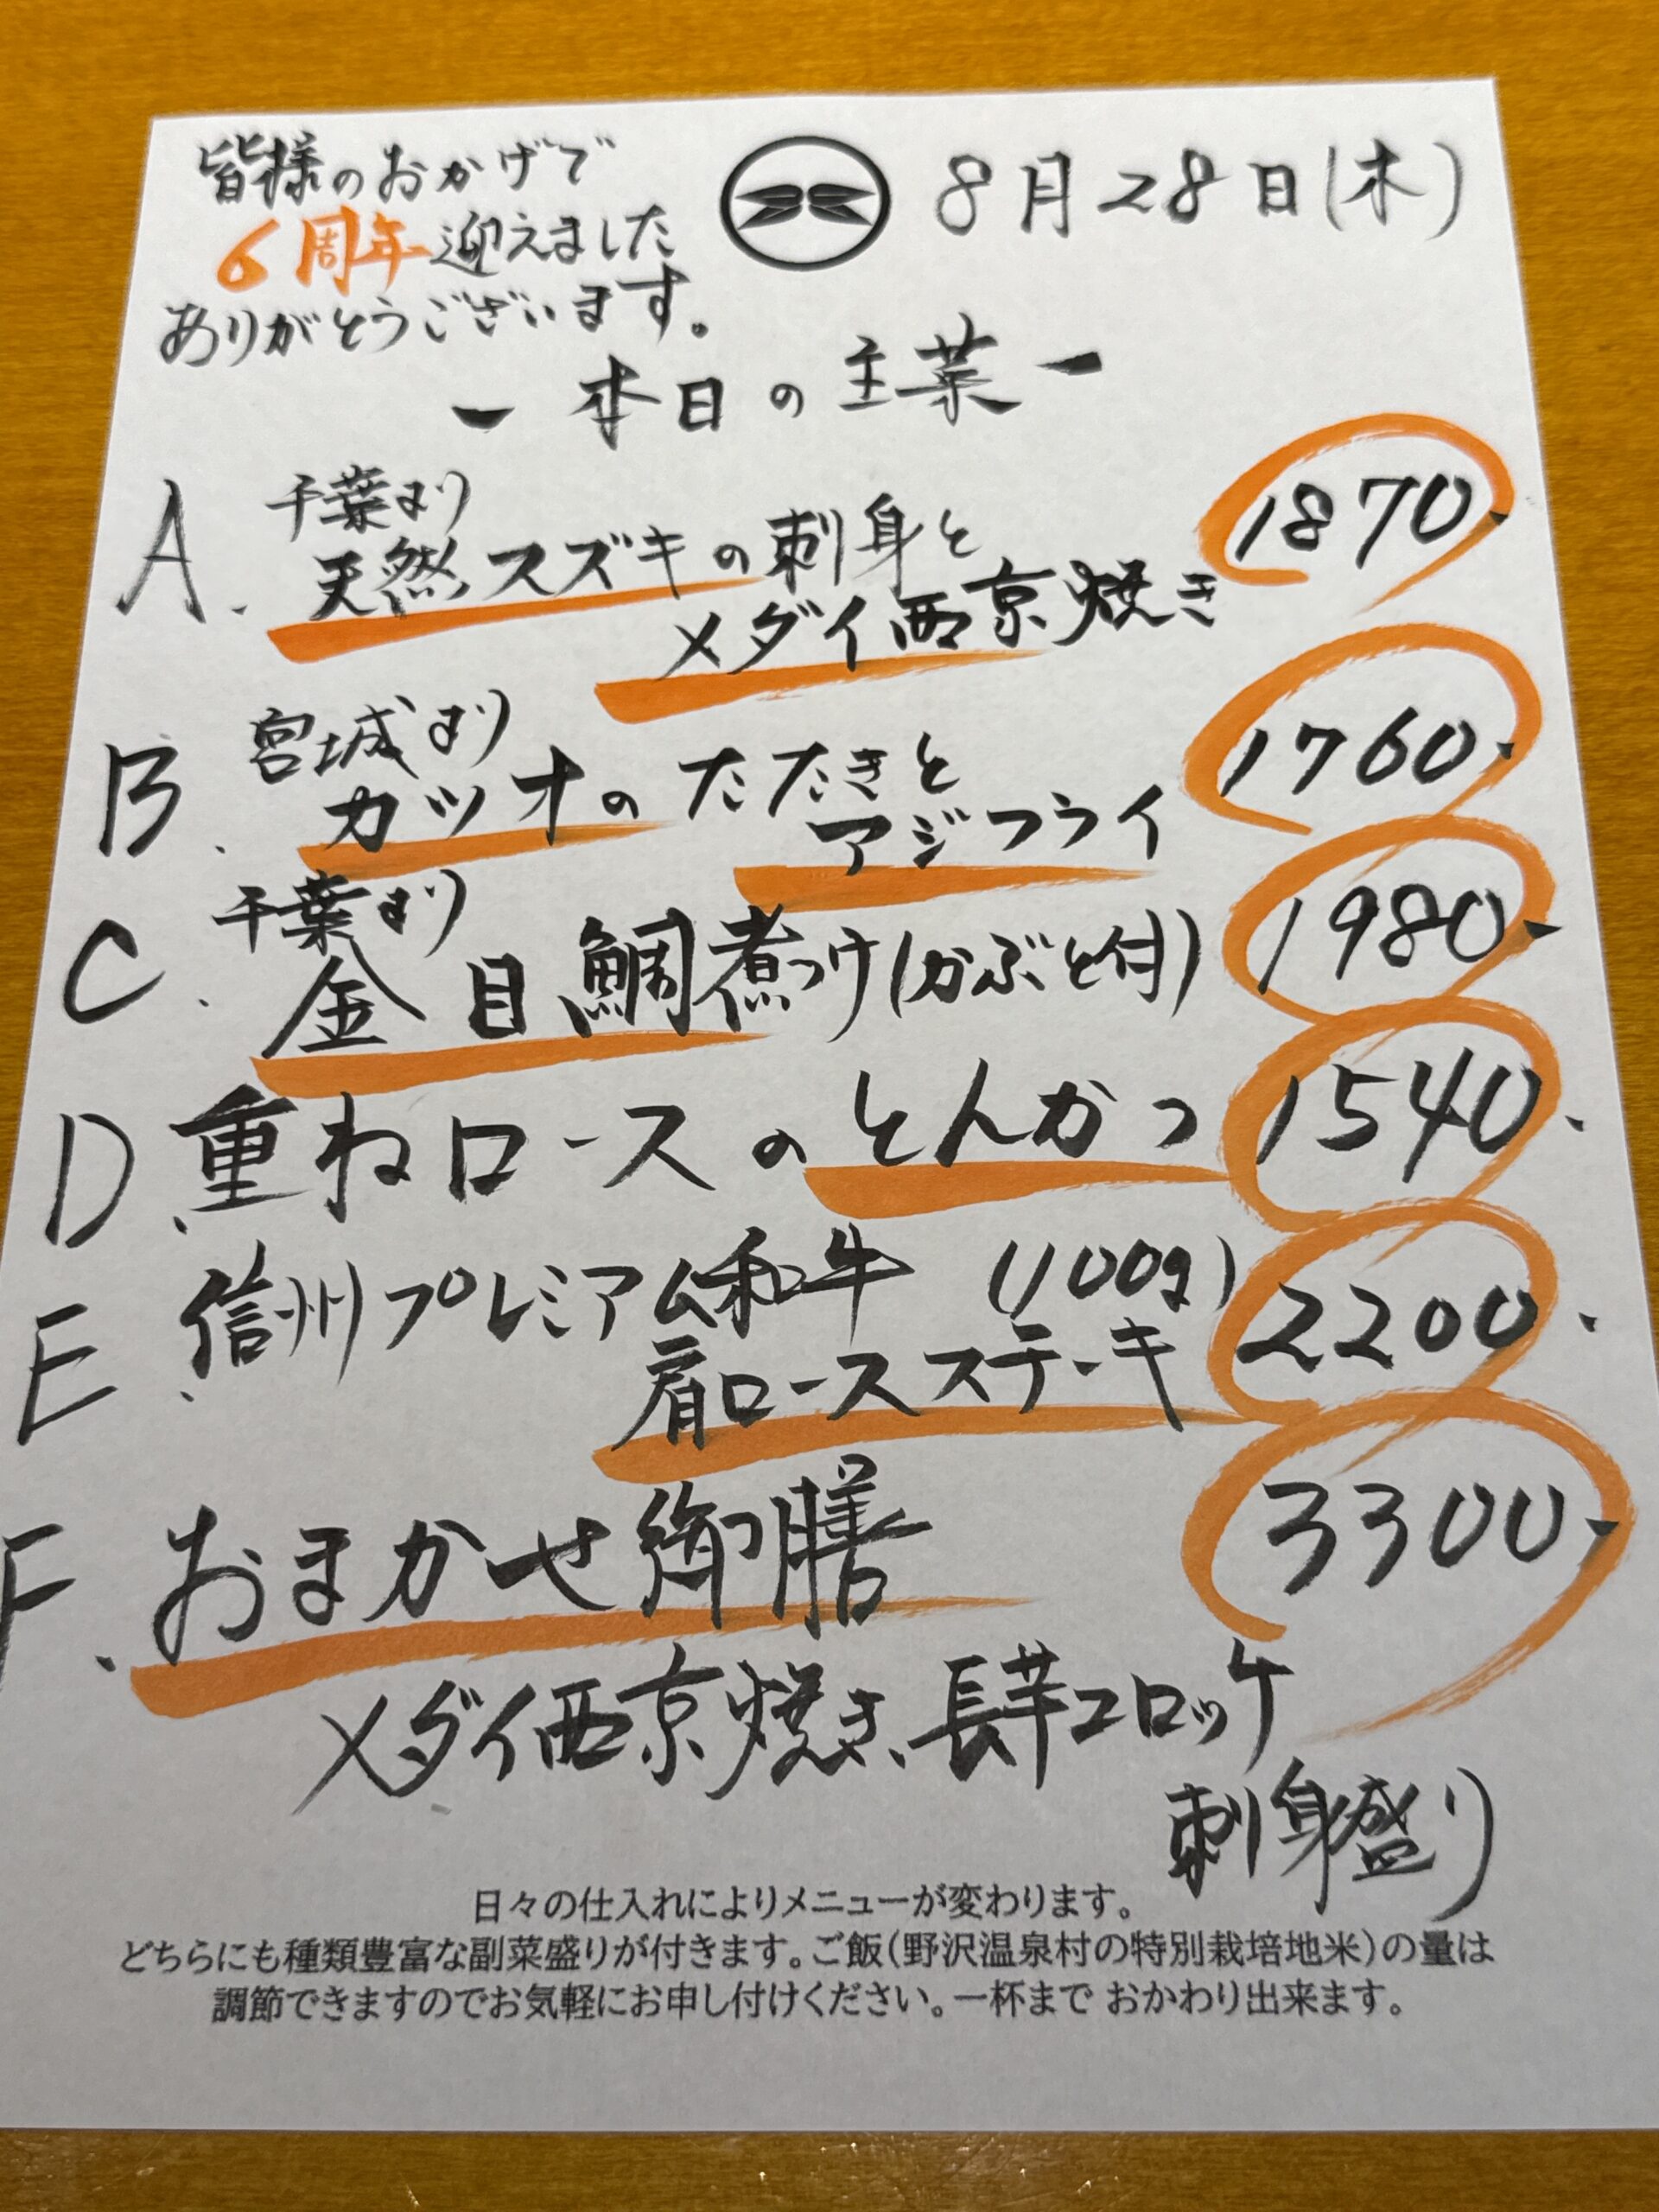 皆様のおかげで
6周年迎えました
ありがとうございます。
8月28日(木)
ー本日の主菜ー
A. 千葉より
天然スズキの刺身と
メダイ西京焼き
1870.
B. 宮城より
カツオのたたきと
アジフライ
1760.
C. 千葉より
金目鯛煮つけ(かぶと付)
1980.
D. 重ねロースのとんかつ 1540.
E. 信州プレミアム和牛 (100g)
肩ロースステーキ
2200.
F. おまかせ御膳 3300.
メダイ西京焼き、長芋コロッケ
刺身盛り
日々の仕入れによりメニューが変わります。
どちらにも種類豊富な副菜盛りが付きます。ご飯(野沢温泉村の特別栽培地米)の量は
調節できますのでお気軽にお申し付けください。一杯まで おかわり出来ます。